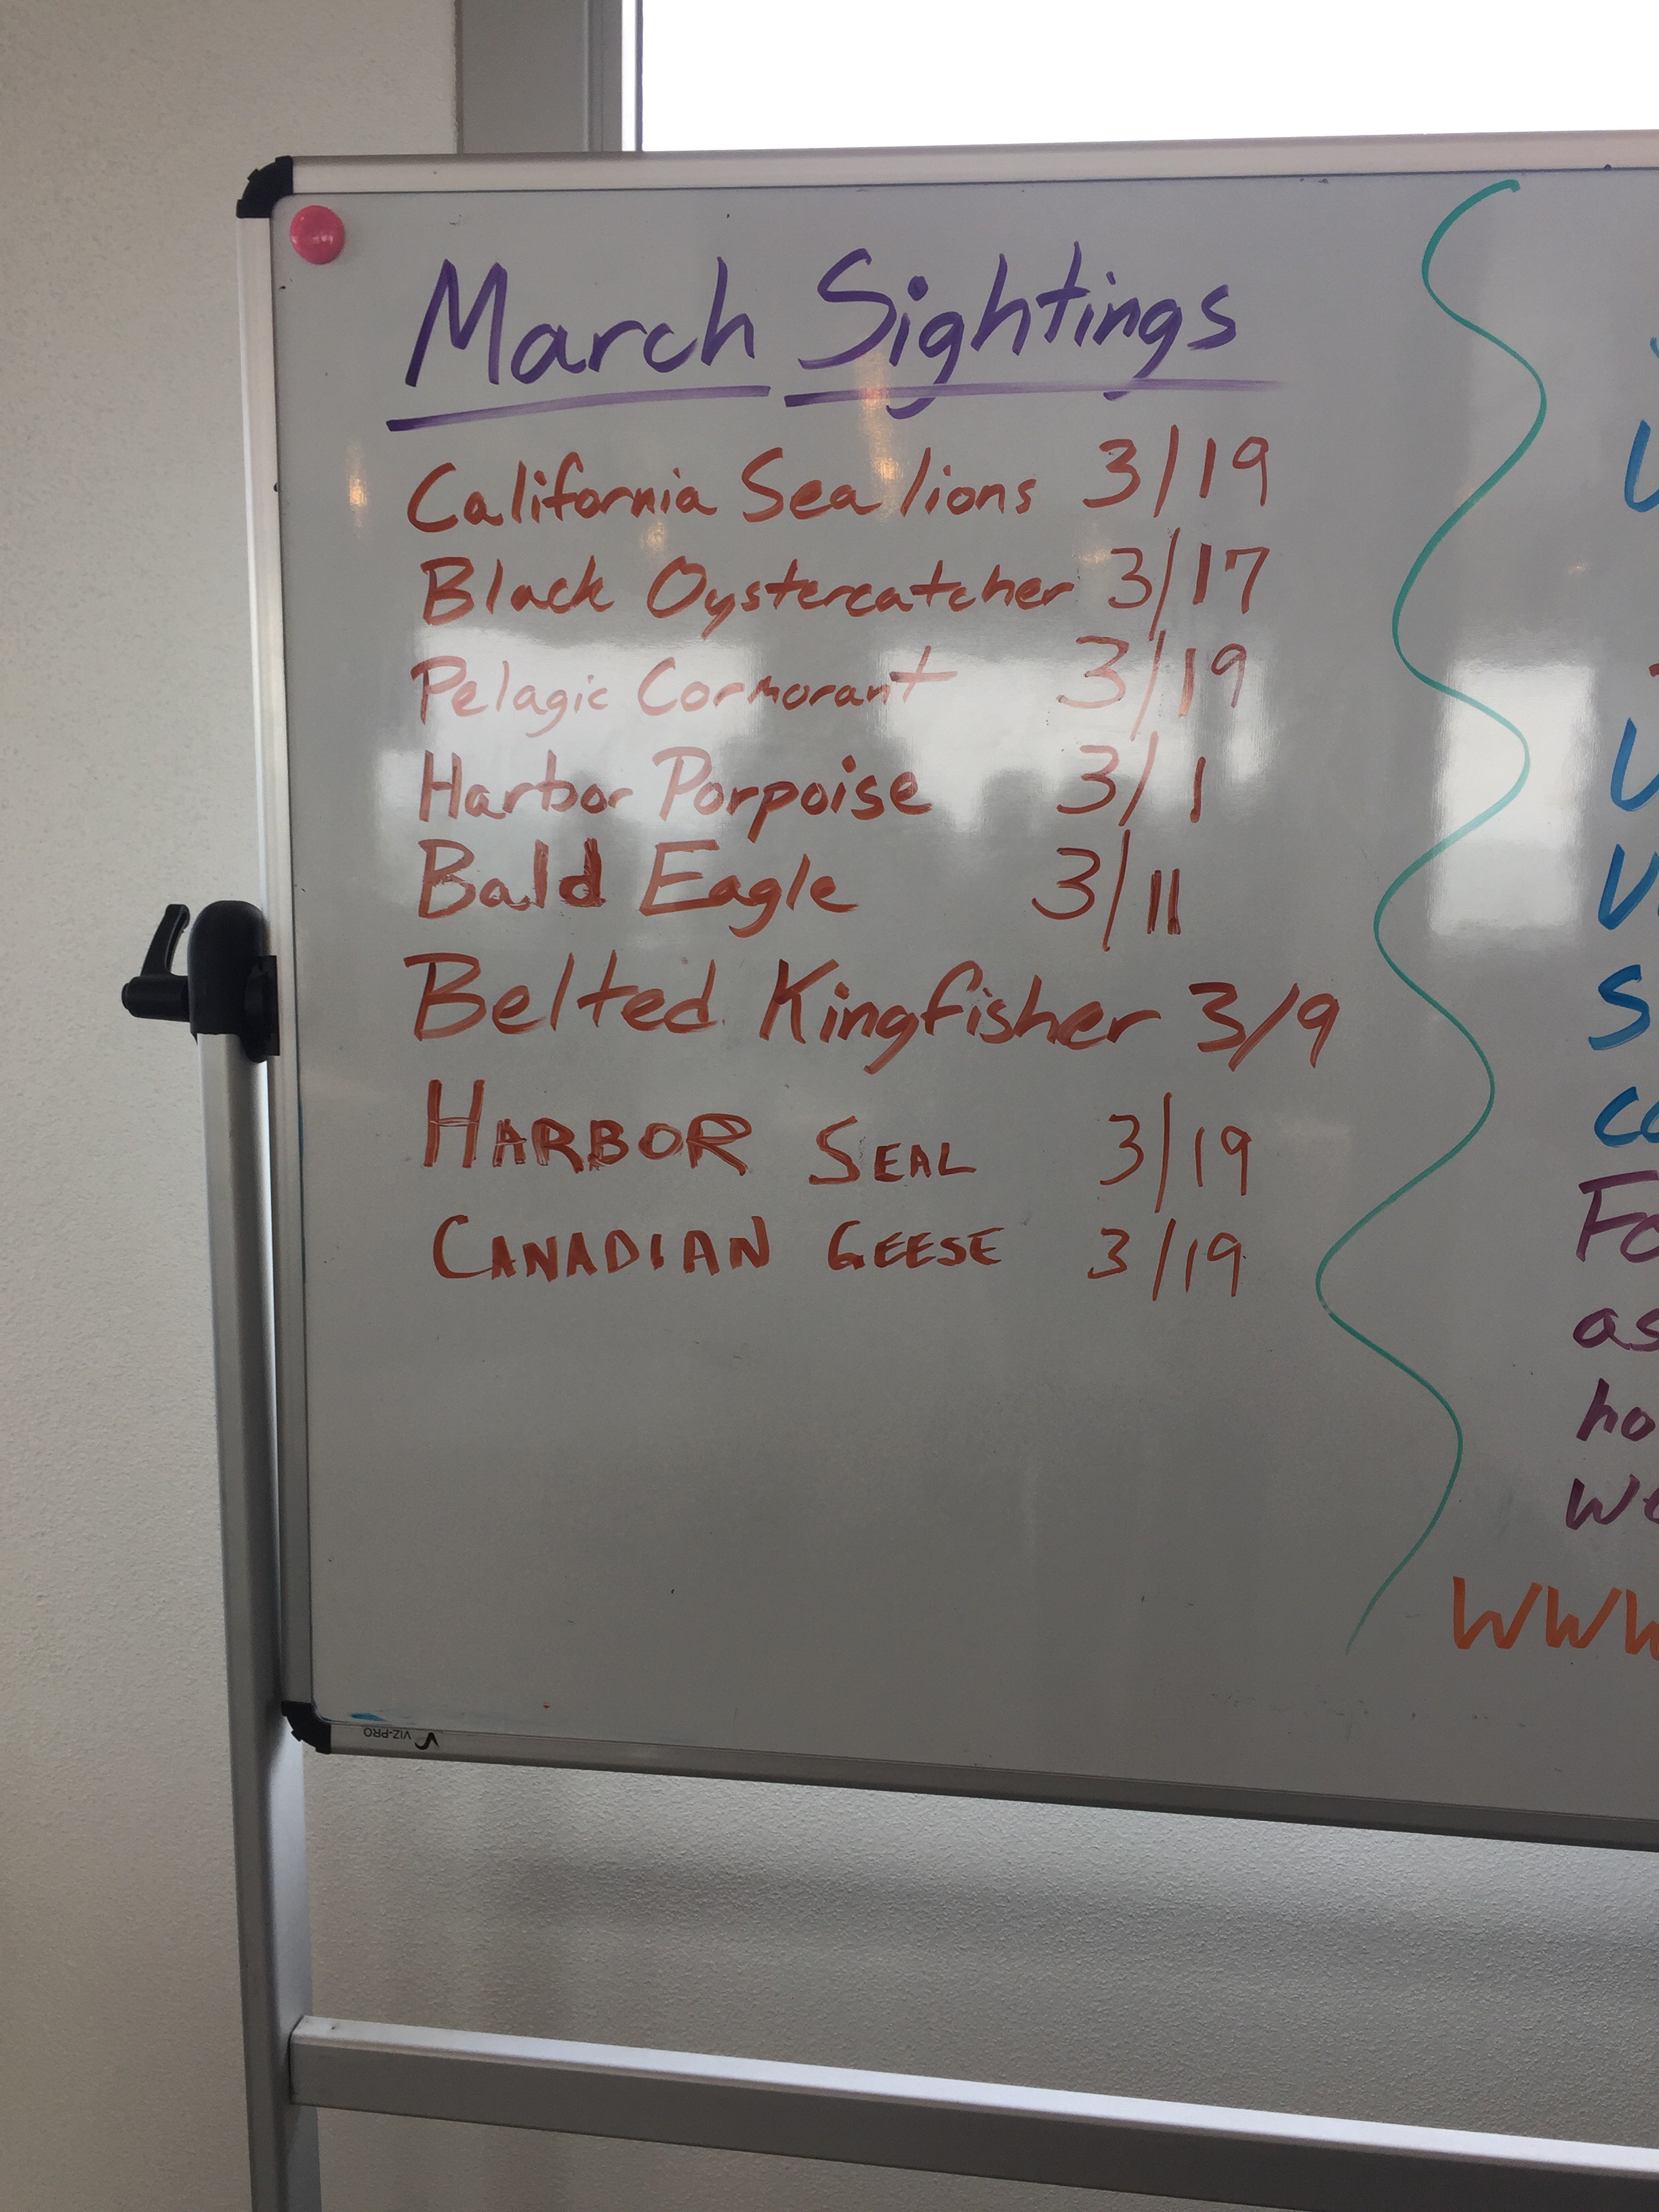 March Sightings
California Sea lions 3/19
Black Oystercatcher 3/17
Pelagic Cormorant 3/19
Harbor Porpoise 3/1
Bald Eagle 3/11
Belted Kingfisher 3/9
HARBOR SEAL 3/19
CANADIAN GEESE 3/19
as
ho
WWW
VIZ-PRO